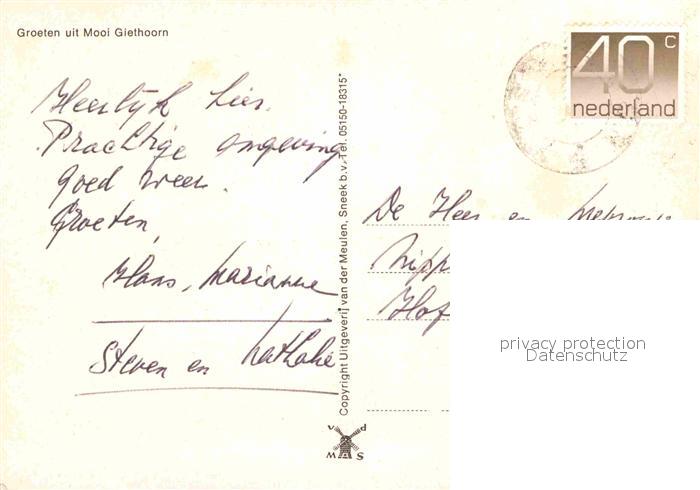 Groeten uit Mooi Giethoorn
Heerlijk hier.
Prachtige omgeving
goed weer.
Groeten,
Hans, Marianne
Steven en Nathalie
Copyright Uitgeverij van der Meulen, Sneek b.v. Tel. 05150-18315*
v d
M S
40 c
nederland
De Heer en Mevrouw
Hof
privacy protection
Datenschutz